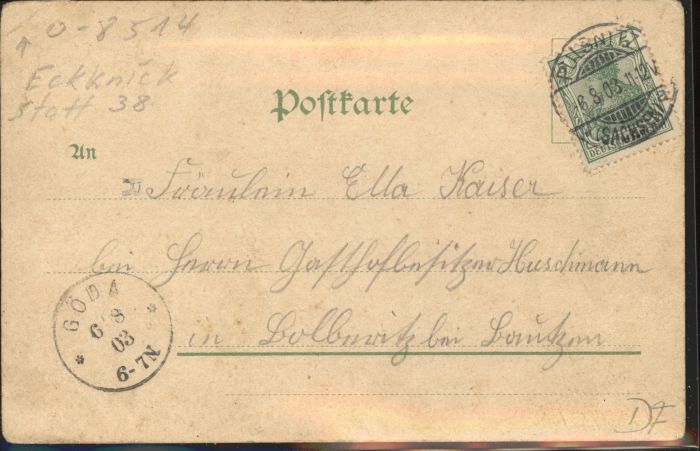 0-8514
Eckknick
statt 38
Postkarte
PULSNITZ
6.8.03. 11-12V.
(SACHSEN)
DEUTSCHES
An
Fräulein Ella Kaiser
bei Herrn Gasthofbesitzer Huschmann
in Bolberitz bei Bautzen
GÖDA
6 8
03
6-7N
DF